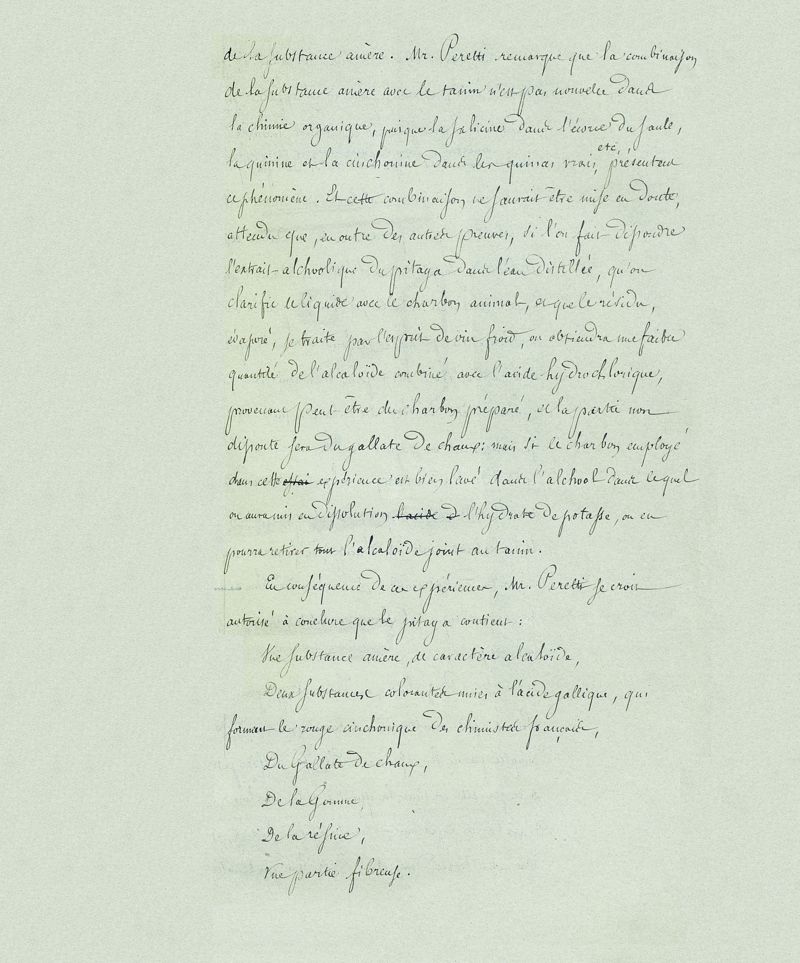 de la substance amère. Mr. Peretti remarque que la combinaison
de la substance amère avec le tanin n'est pas nouvelle dans
la chimie organique, puisque la salicine dans l'écorce du saule,
la quinine et la cinchonine dans les quinas vrais, etc, présentent
ce phénomène. Et cette combinaison ne saurait être mise en doute,
attendu que, en outre des autres preuves, si l'on fait dissoudre
l'extrait alchoolique du pitaya dans l'eau distillée, qu'on
clarifie le liquide avec le charbon animal, et que le résidu,
évaporé, se traite par l'esprit de vin froid, on obtiendra une faible
quantité de l'alcaloïde combiné avec l'acide hydrochlorique,
provenant peut être du charbon préparé, et la partie non
dissoute sera du gallate de chaux: mais si le charbon employé
dans cette essai expérience est bien lavé dans l'alchool dans lequel
on aura mis en dissolution l'acide d l'hydrate de potasse, on en
pourra retirer tout l'alcaloïde joint au tanin.
En conséquence de ces expériences, Mr. Peretti se croit
autorisé à conclure que le pitaya contient:
Une substance amère, de caractère alcaloïde,
Deux substances colorantes unies à l'acide gallique, qui
forment le rouge cinchonique des chimistes français,
Du Gallate de chaux,
De la Gomme,
De la résine,
Une partie fibreuse.